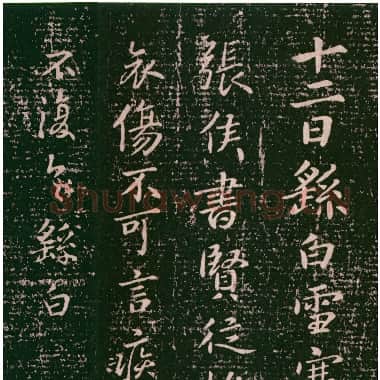 十二日繇白雪寒
張侯書賢從
哀傷不可言疾
不復具繇白
Shufawang.cn